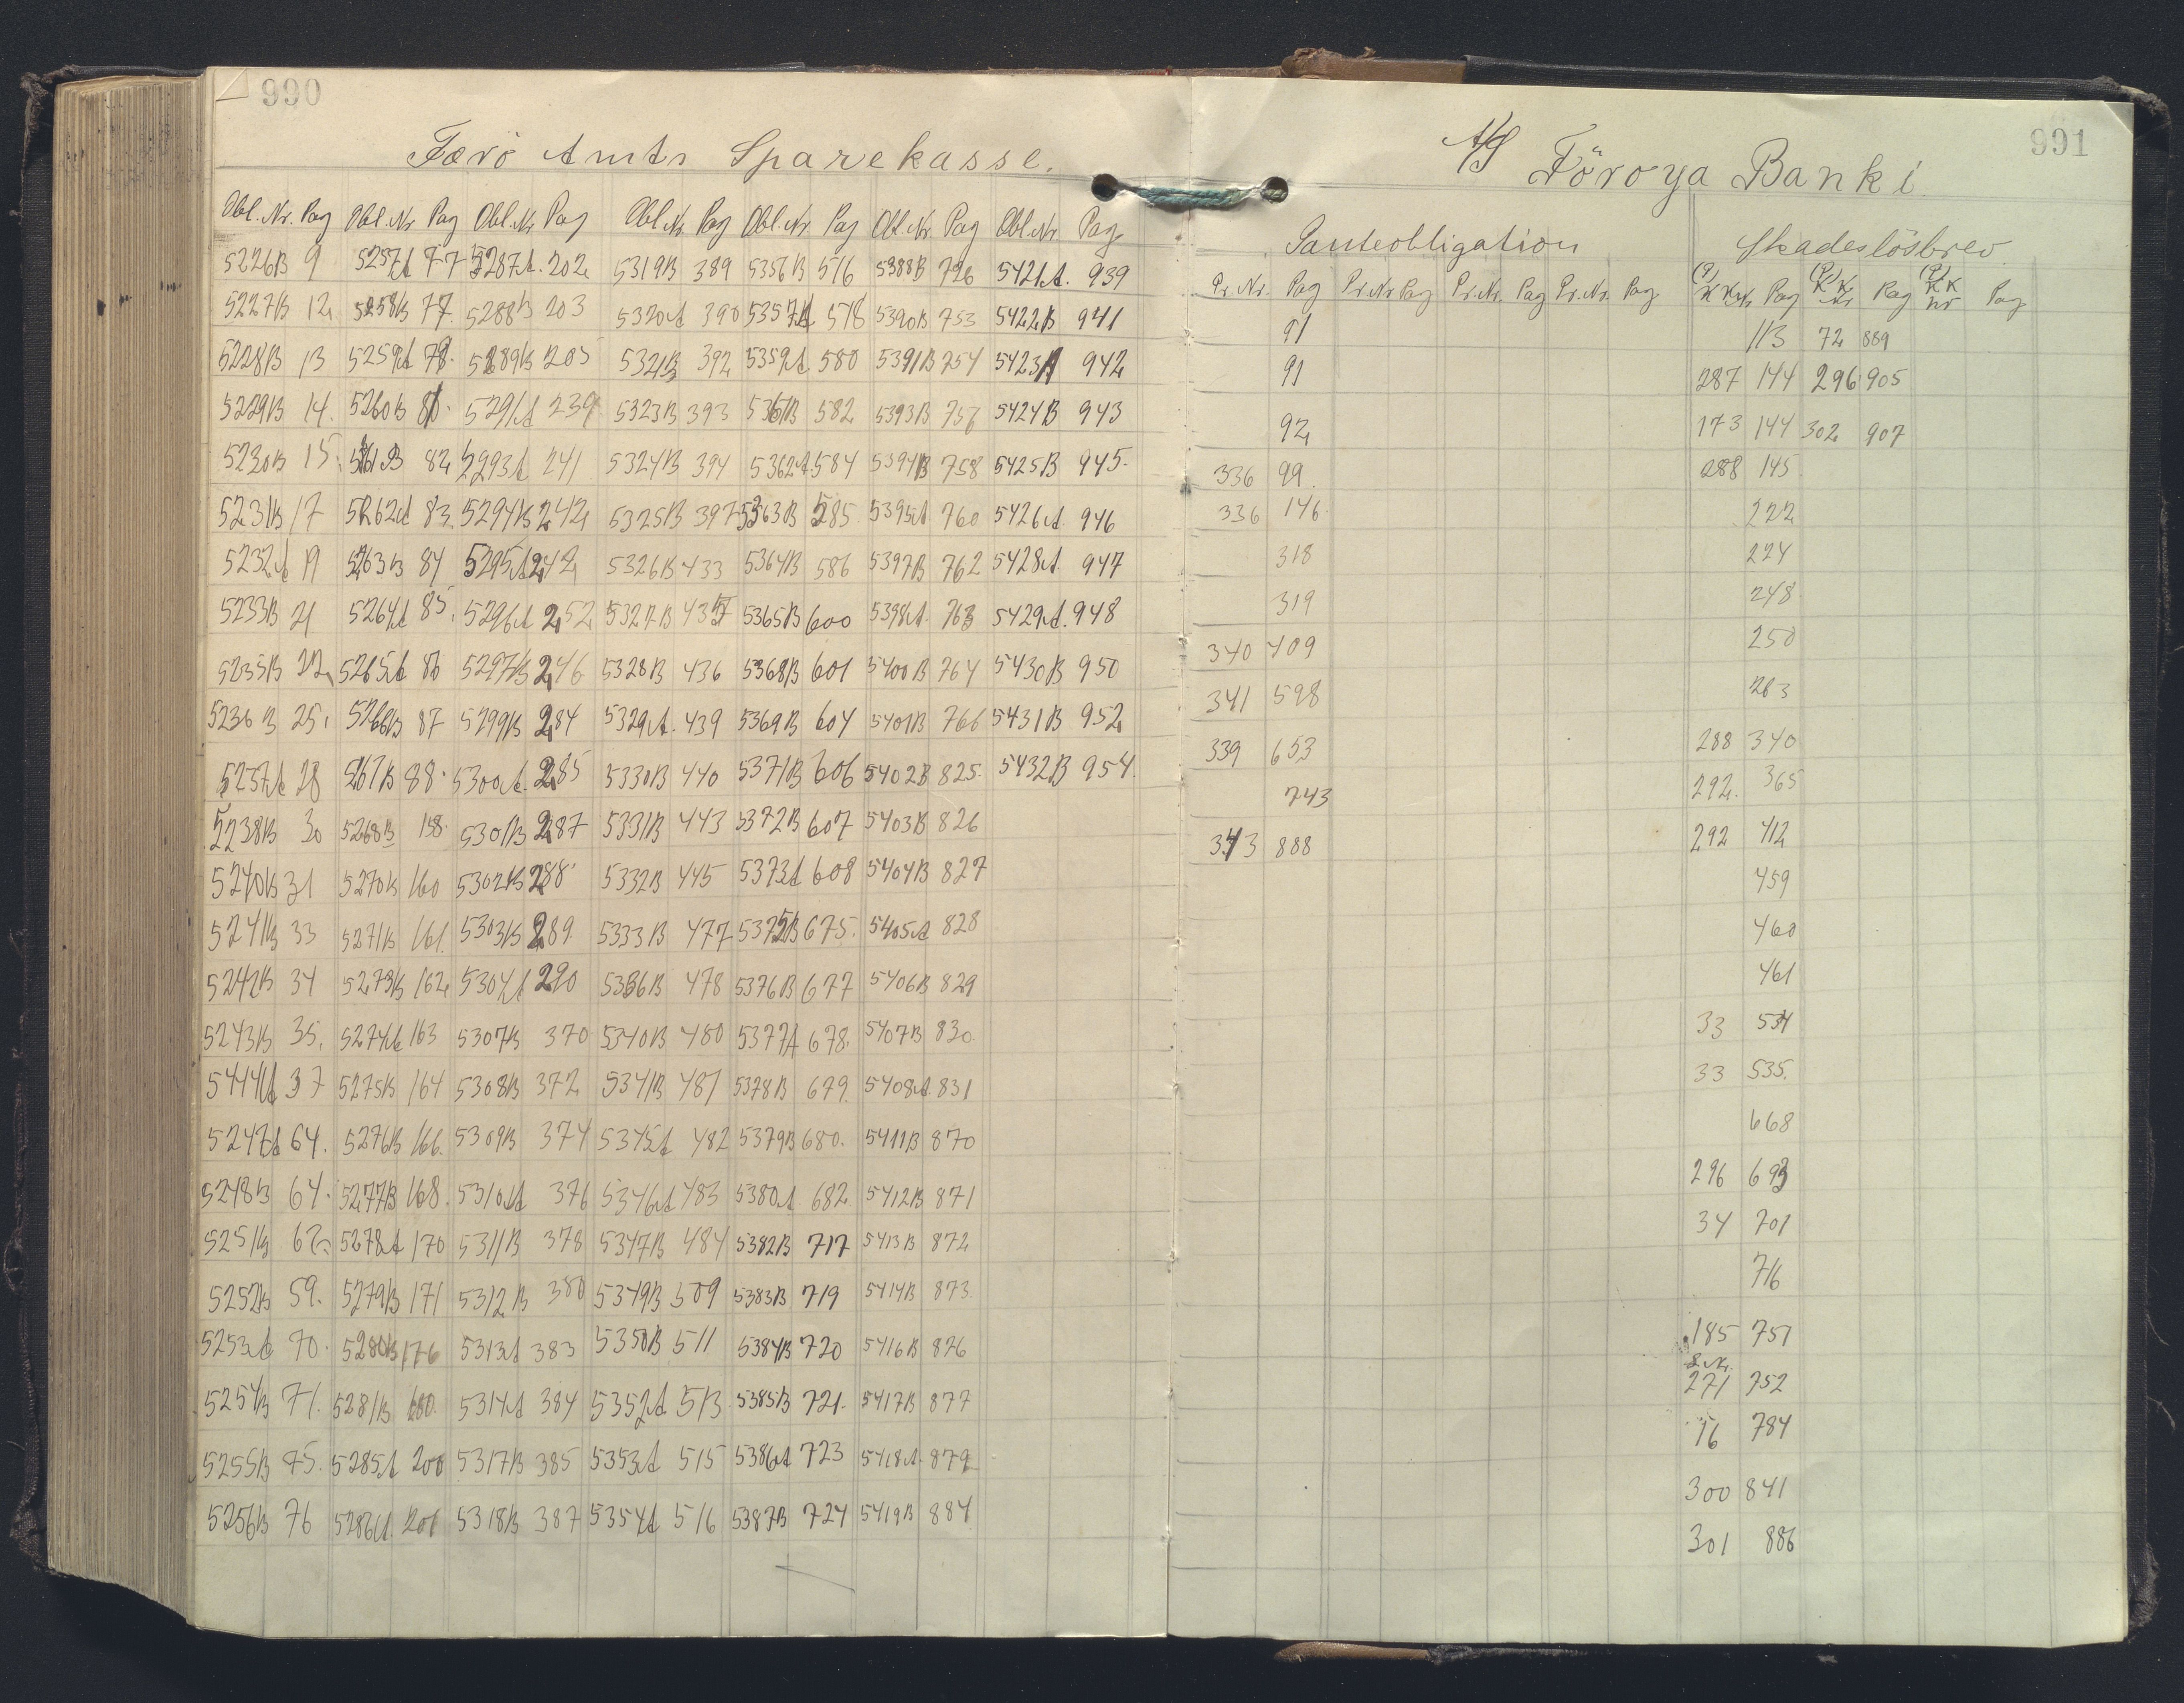 990
Færö Amts Sparekasse.
Obl. Nr. Pag Obl. Nr Pag Obl. Nr Pag Obl. Nr Pag Obl. Nr. Pag Obl. Nr. Pag Obl. Nr. Pag
5226B 9 5257A 77 5287A. 202 5319B 389 5356B 516 5388B 726 5421A. 939
5227B 12 5258B 77. 5288B 203 5320A 390 5357A 578 5390B 753 5422B 941
5228B 13 5259A 78. 5289B 205 5321B 392 5359A. 580 5391B 754 5423A 942
5229B 14. 5260B 81. 5291A 239 5323B 393 5361B 582 5393B 756 5424B 943
5230B 15. 5261B 82 5293A 241 5324B 394 5362A 584 5394B 758 5425B 945.
5231B 17 5262A 83. 5294B 242 5325B 397 5363B 585 5395A 760 5426A. 946
5232A 19 5263B 84 5295A 242 5326B 433 5364B 586 5397B 762 5428A. 947
5233B 21 5264A 85. 5296A 252 5327B 435 5365B 600 5398A. 763 5429A. 948
5235B 22 5265A 86 5297B 246 5328B 436 5368B 601 5400B 764 5430B 950
5236B 25. 5266B 87 5299B 284 5329A. 439 5369B 604 5401B 766 5431B 952
5237A 28 5267B 88. 5300A. 285 5330B 440 5371B 606 5402B 825. 5432B 954.
5238B 30 5268B 158. 5301B 287 5331B 443 5372B 607 5403B 826
5240B 31 5270B 160 5302B 288 5332B 445 5373A 608 5404B 827
5241B 33 5271B 161. 5303B 289 5333B 477 5375B 675. 5405A 828
5242B 34 5273B 162 5304A 290 5336B 478 5376B 677 5406B 829
5243B 35. 5274A 163 5307B 370 5340B 480 5377A 678. 5407B 830.
5414A 37 5275B 164 5308B 372 5341B 481 5378B 679. 5408A. 831
5247A 64. 5276B 166. 5309B 374 5345A 482 5379B 680. 5411B 870
5248B 64. 5277B 168. 5310A 376 5346A 483 5380A 682 5412B 871
5251B 5278A 170 5311B 378 5347B 484 5382B 717 5413B 872
5252B 59. 5279B 171 5312B 380 5349B 509 5383B 719 5414B 873.
5253A 70. 5280B 176 5313A 383 5350B 511 5384B 720 5416B 876
5254B 71. 5281B 5314A 384 5352A 513 5385B 721. 5417B 877
5255B 75. 5285A 200 5317B 385 5353A 515 5386A 723 5418A. 879
5256B 76 5286A. 201 5318B 387 5354A 516 5387B 724 5419B 884
991
A/S Föroya Banki
Panteobligation Skadeslösbrev.
Pr. Nr. Pag Pr. Nr Pag Pr. Nr. Pag Pr. Nr. Pag (P) K K Nr Pag (P) K K Nr Pag (P) K K nr Pag
91 113 72 889
91 287 144 296 905
92 173 144 302 907
336 99. 288 145.
336 146. 222
318 224
319 248
340 409 250
341 598 263
339 653 288 340
743 292. 365
343 888 292 412
459
460
461
33 534
33 535.
668
296 693
34 701
716
185 757
271 752
16 784
300 841
301 886